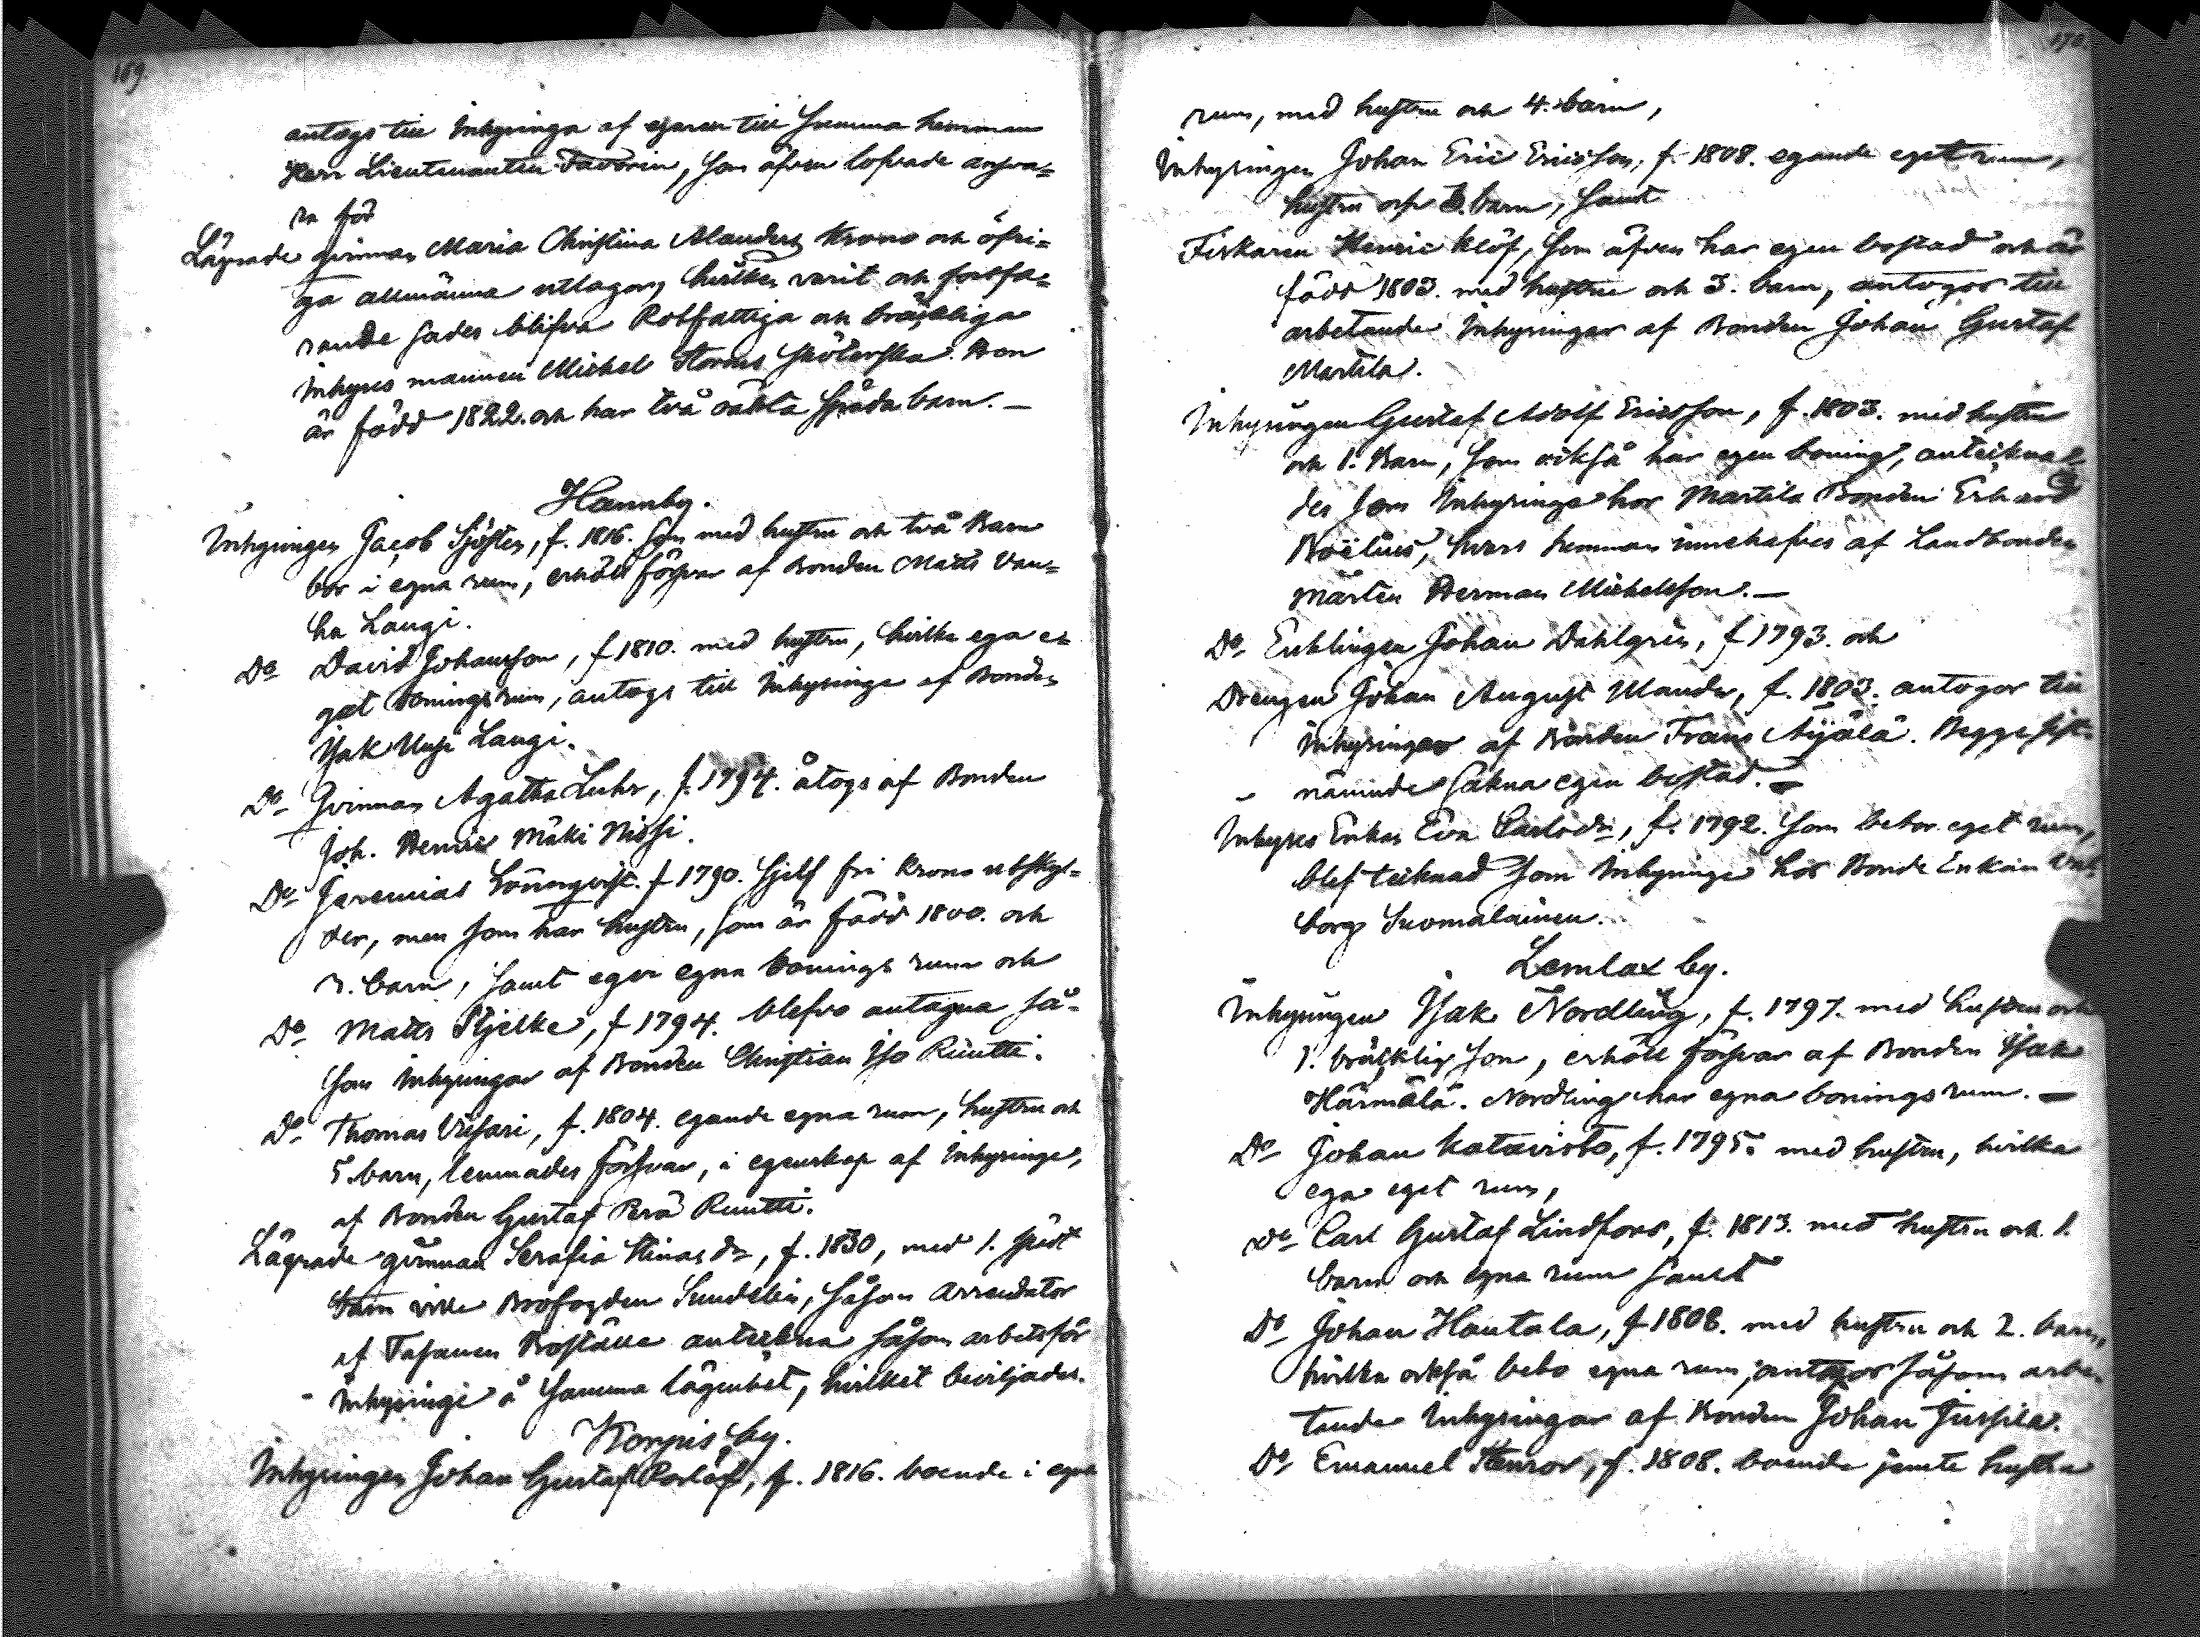 169
antogs till Inhysinga af egaren till samma hemman
Herr Lieutenanten Favorin, som äfven lofvade ansva=
ra för
Lägrade qvinnan Maria Christina Alanders Krono och öfri=
ga allmänna utlagor, hvilken varit och fortfa=
rande sades blifva Rotfattiga och bräckliga
Inhyses mannen Michel Storms sköterska. Hon
är född 1822. och har två oäkta späda barn. —
Hannby.
Inhysingen Jacob Sjösten, f. 1816. som med hustru och två Barn
bor i egna rum, erhöll försvar af Bonden Matts Van=
ha Laugi.
Do David Johansson, f 1810. med hustru, hvilka ega e=
get boningsrum, antogs till Inhysinge af Bonden
Isak Uusi Laugi.
Do Qvinnan Agatha Luhr, f. 1794. åtogs af Bonden
Joh. Henric Mäki Nissi.
Do Jeremias Lönnqvist. f 1790. sjelf fri Krono utskyl=
der, men som har hustru, som är född 1800. och
2. barn, samt eger egna bonings rum och
Do Matts Stjelke, f 1794. blefvo antagna så=
som Inhysingar af Bonden Christian Iso Ruutti.
Do Thomas Urfari, f. 1804. egande egna rum, hustru och
5. barn, lemnades försvar, i egenskap af Inhysinge,
af Bonden Gustaf Perä Ruutti.
Lägrade qvinnan Serafia Stinas dr, f. 1830, med 1. spädt
barn ville Brofogden Sundelin, såsom Arrendator
af Tasanen Boställe anteckna såsom arbetsför
Inhysinge å samma lägenhet, hvilket beviljades.
Korpis by.
Inhysingen Johan Gustaf Porläf, f. 1816. boende i egna
170
rum, med hustru och 4. barn,
Inhysingen Johan Eric Ericsson, f. 1808. egande eget rum,
hustru och 3. barn, samt
Fiskaren Henric Klöf, som äfven har egen bostad och är
född 1803. med hustru och 3. barn, antogos till
arbetande Inhysingar af Bonden Johan Gustaf
Martila.
Inhysingen Gustaf Adolf Ericsson, f. 1803. med hustru
och 1. Barn, som också har egen boning, anteckna=
des som Inhysinge hos Martila Bonden Erhard
Boëlius, hvars hemman innehafves af Landbonden
Mårten Herman Michelsson. —
Do Enklingen Johan Dahlgren, f 1793. och
Drengen Johan August Ulander, f. 1803. antogos till
Inhysingar af Bonden Frans Äijälä. Begge sist=
nämnde sakna egen bostad. —
Inhyses Enkan Eva Carlsdr, f. 1792. som bebor eget rum,
blef tecknad som Inhysinge hos Bonde Enkan Val
borg Suomalainen.
Lemlax by.
Inhysingen Isak Nordling, f. 1797. med hustru och
1. bräcklig son, erhöll försvar af Bonden Isak
Härmälä. Nordling har egna bonings rum. —
Do Johan Katavisto, f. 1795. med hustru, hvilka
ega eget rum,
Do Carl Gustaf Lindfors, f. 1813. med hustru och 1.
barn och egna rum samt
Do Johan Hautala, f 1808. med hustru och 2. barn,
hvilka också bebo egna rum, antogos såsom arbe=
tande Inhysingar af Bonden Johan Jussila.
Do Emanuel Stenroos, f. 1808. boende jemte hustru